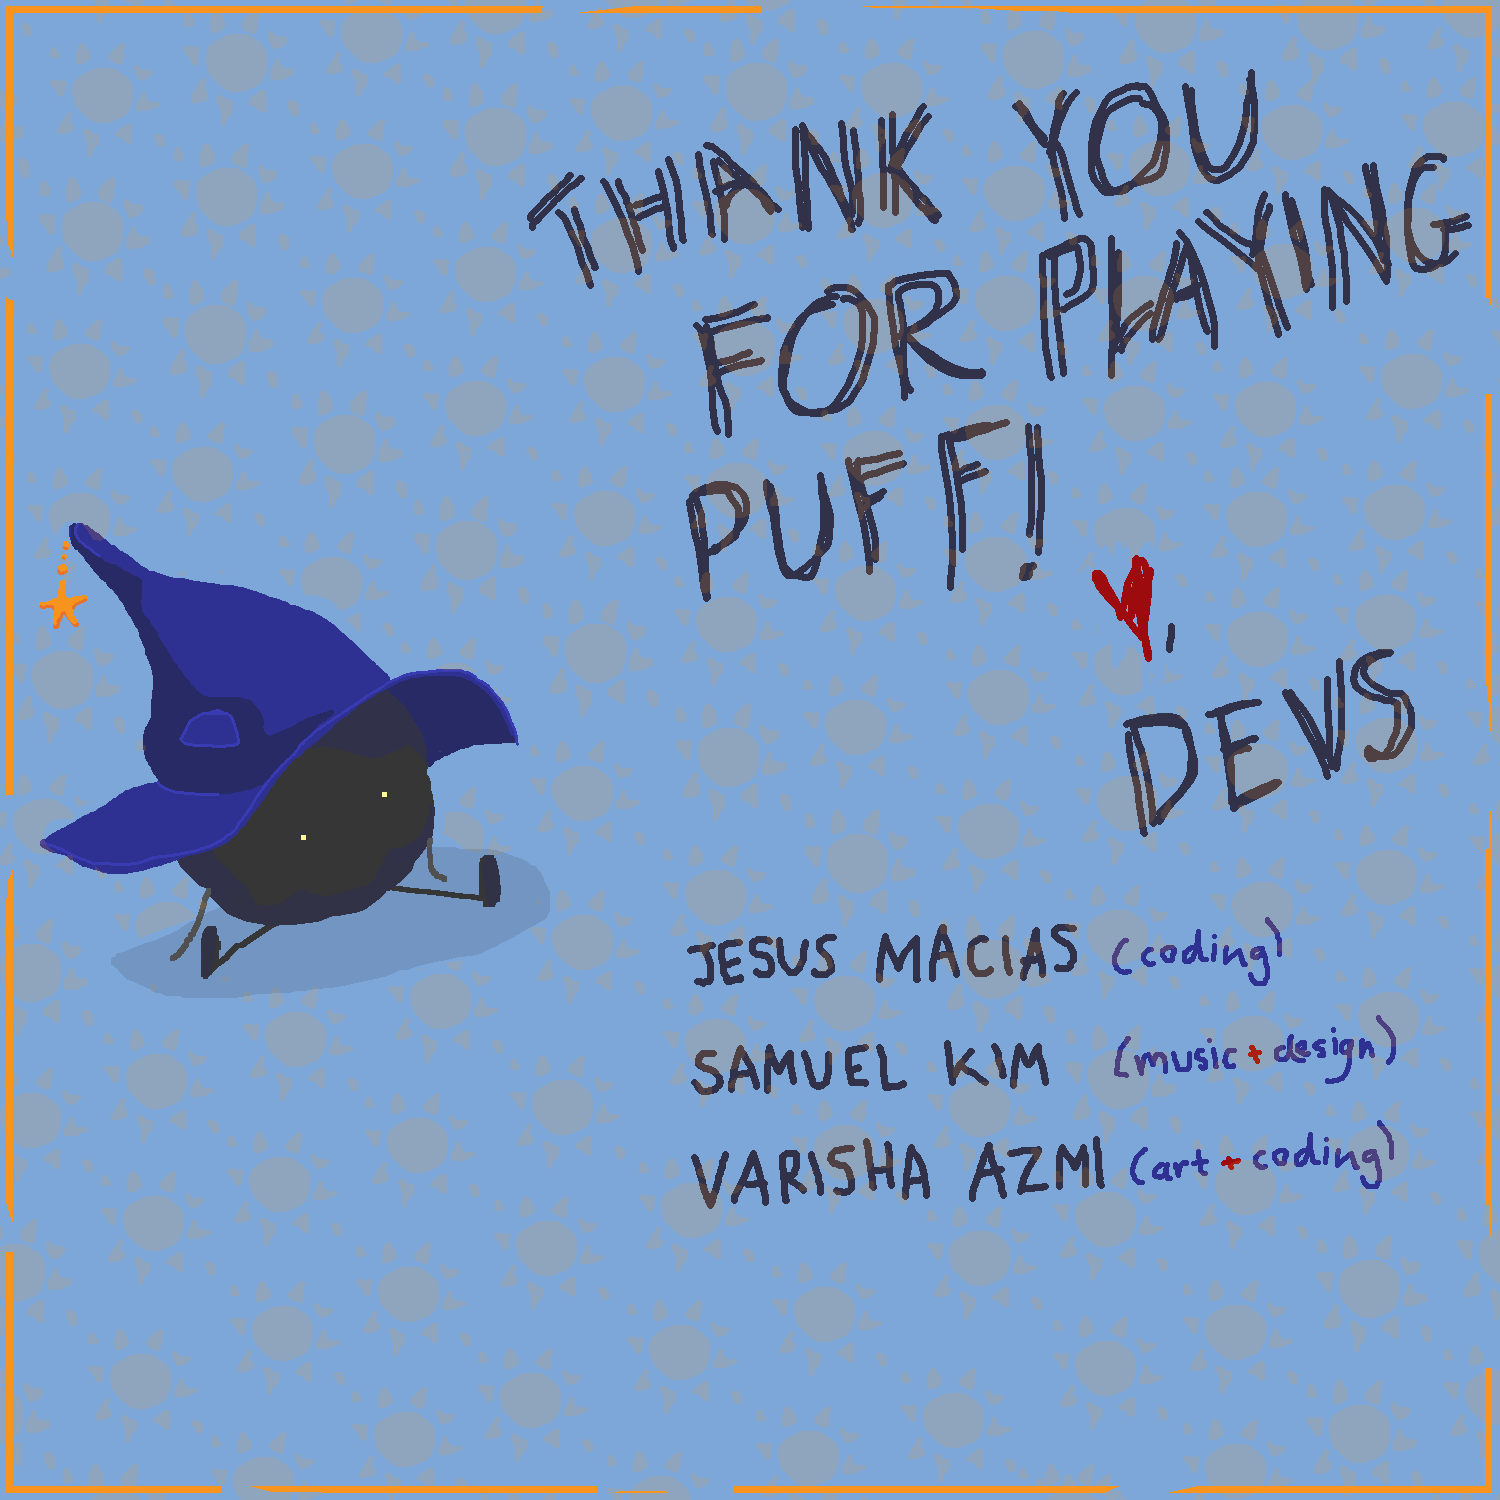 THANK YOU
FOR PLAYING
PUFF!
♥,
DEVS
JESUS MACIAS (coding)
SAMUEL KIM (music + design)
VARISHA AZMI (art + coding)